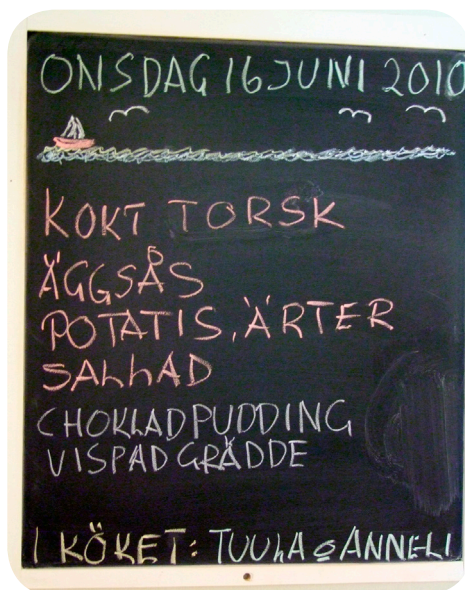 ONSDAG 16 JUNI 2010
KOKT TORSK
ÄGGSÅS
POTATIS, ÄRTER
SALLAD
CHOKLADPUDDING
VISPAD GRÄDDE
I KÖKET: TUULA o ANNELI